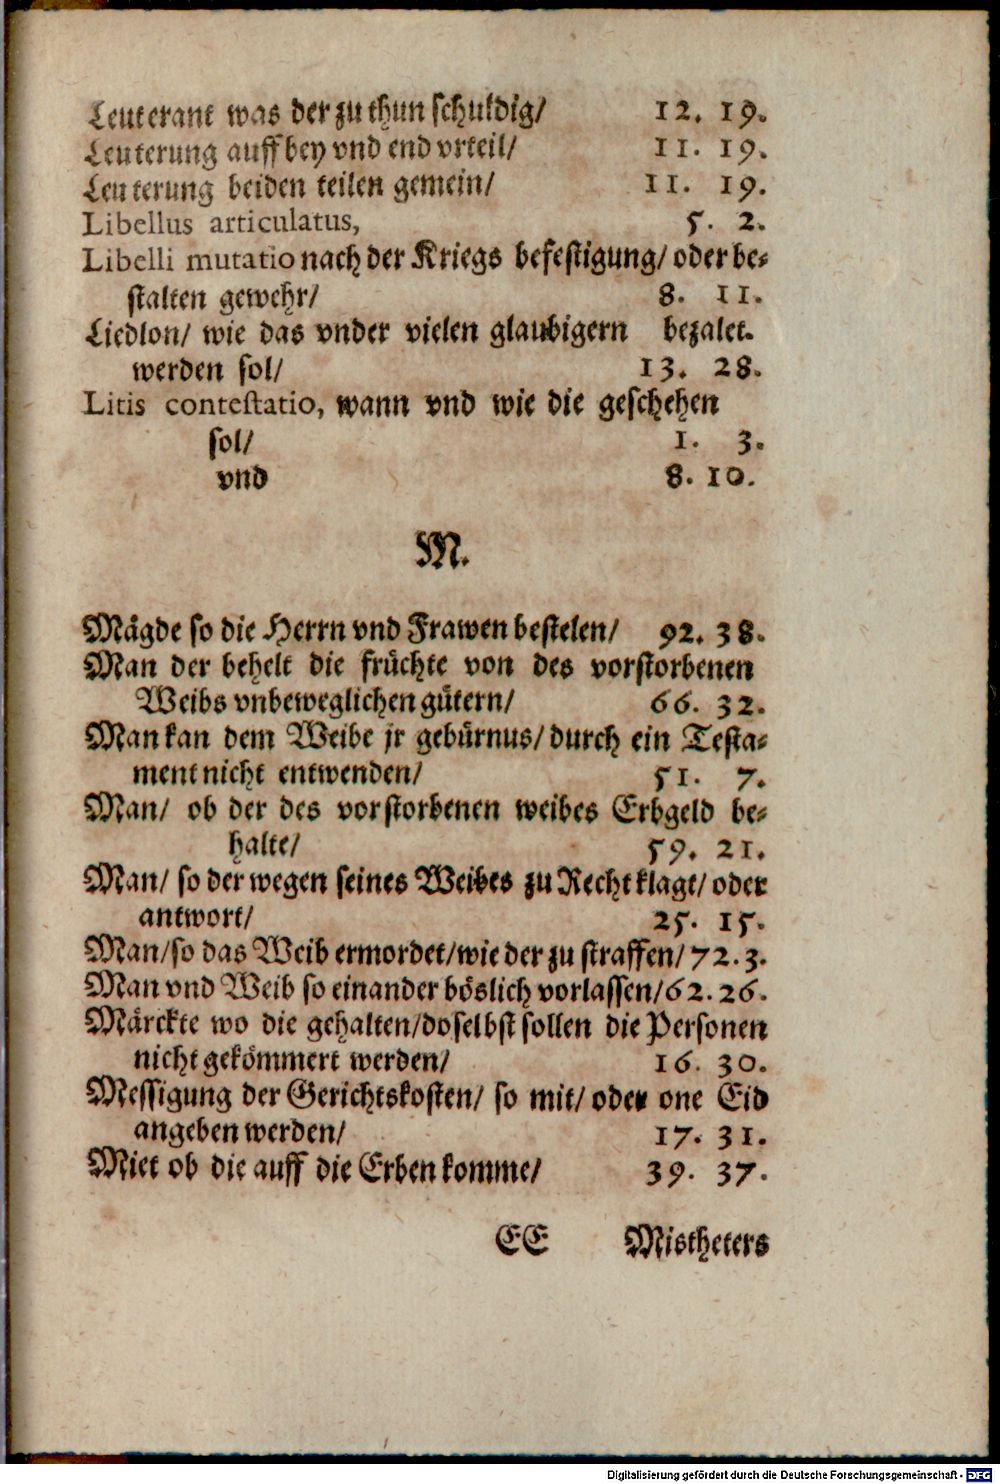 Leuterant was der zu thun schuldig/ 12. 19.
Leuterung auff bey vnd end vrteil/ 11. 19.
Leuterung beiden teilen gemein/ 11. 19.
Libellus articulatus, 5. 2.
Libelli mutatio nach der Kriegs befestigung/ oder be⸗
stalten gewehr/ 8. 11.
Liedlon/ wie das vnder vielen glaubigern bezalet.
werden sol/ 13. 28.
Litis contestatio, wann vnd wie die geschehen
sol/ 1. 3.
vnd 8. 10.
M.
Mågde so die Herrn vnd Frawen bestelen/ 92. 38.
Man der behelt die frůchte von des vorstorbenen
Weibs vnbeweglichen gůtern/ 66. 32.
Man kan dem Weibe jr gebůrnus/ durch ein Testa⸗
ment nicht entwenden/ 51. 7.
Man/ ob der des vorstorbenen weibes Erbgeld be⸗
halte/ 59. 21.
Man/ so der wegen seines Weibes zu Recht klagt/ oder
antwort/ 25. 15.
Man/ so das Weib ermordet/ wie der zu straffen/ 72. 3.
Man vnd Weib so einander böslich vorlassen/ 62. 26.
Mårckte wo die gehalten/ doselbst sollen die Personen
nicht gekömmert werden/ 16. 30.
Messigung der Gerichtskosten/ so mit/ oder one Eid
angeben werden/ 17. 31.
Miet ob die auff die Erben komme/ 39. 37.
EE Mistheters
Digitalisierung gefördert durch die Deutsche Forschungsgemeinschaft - DFG